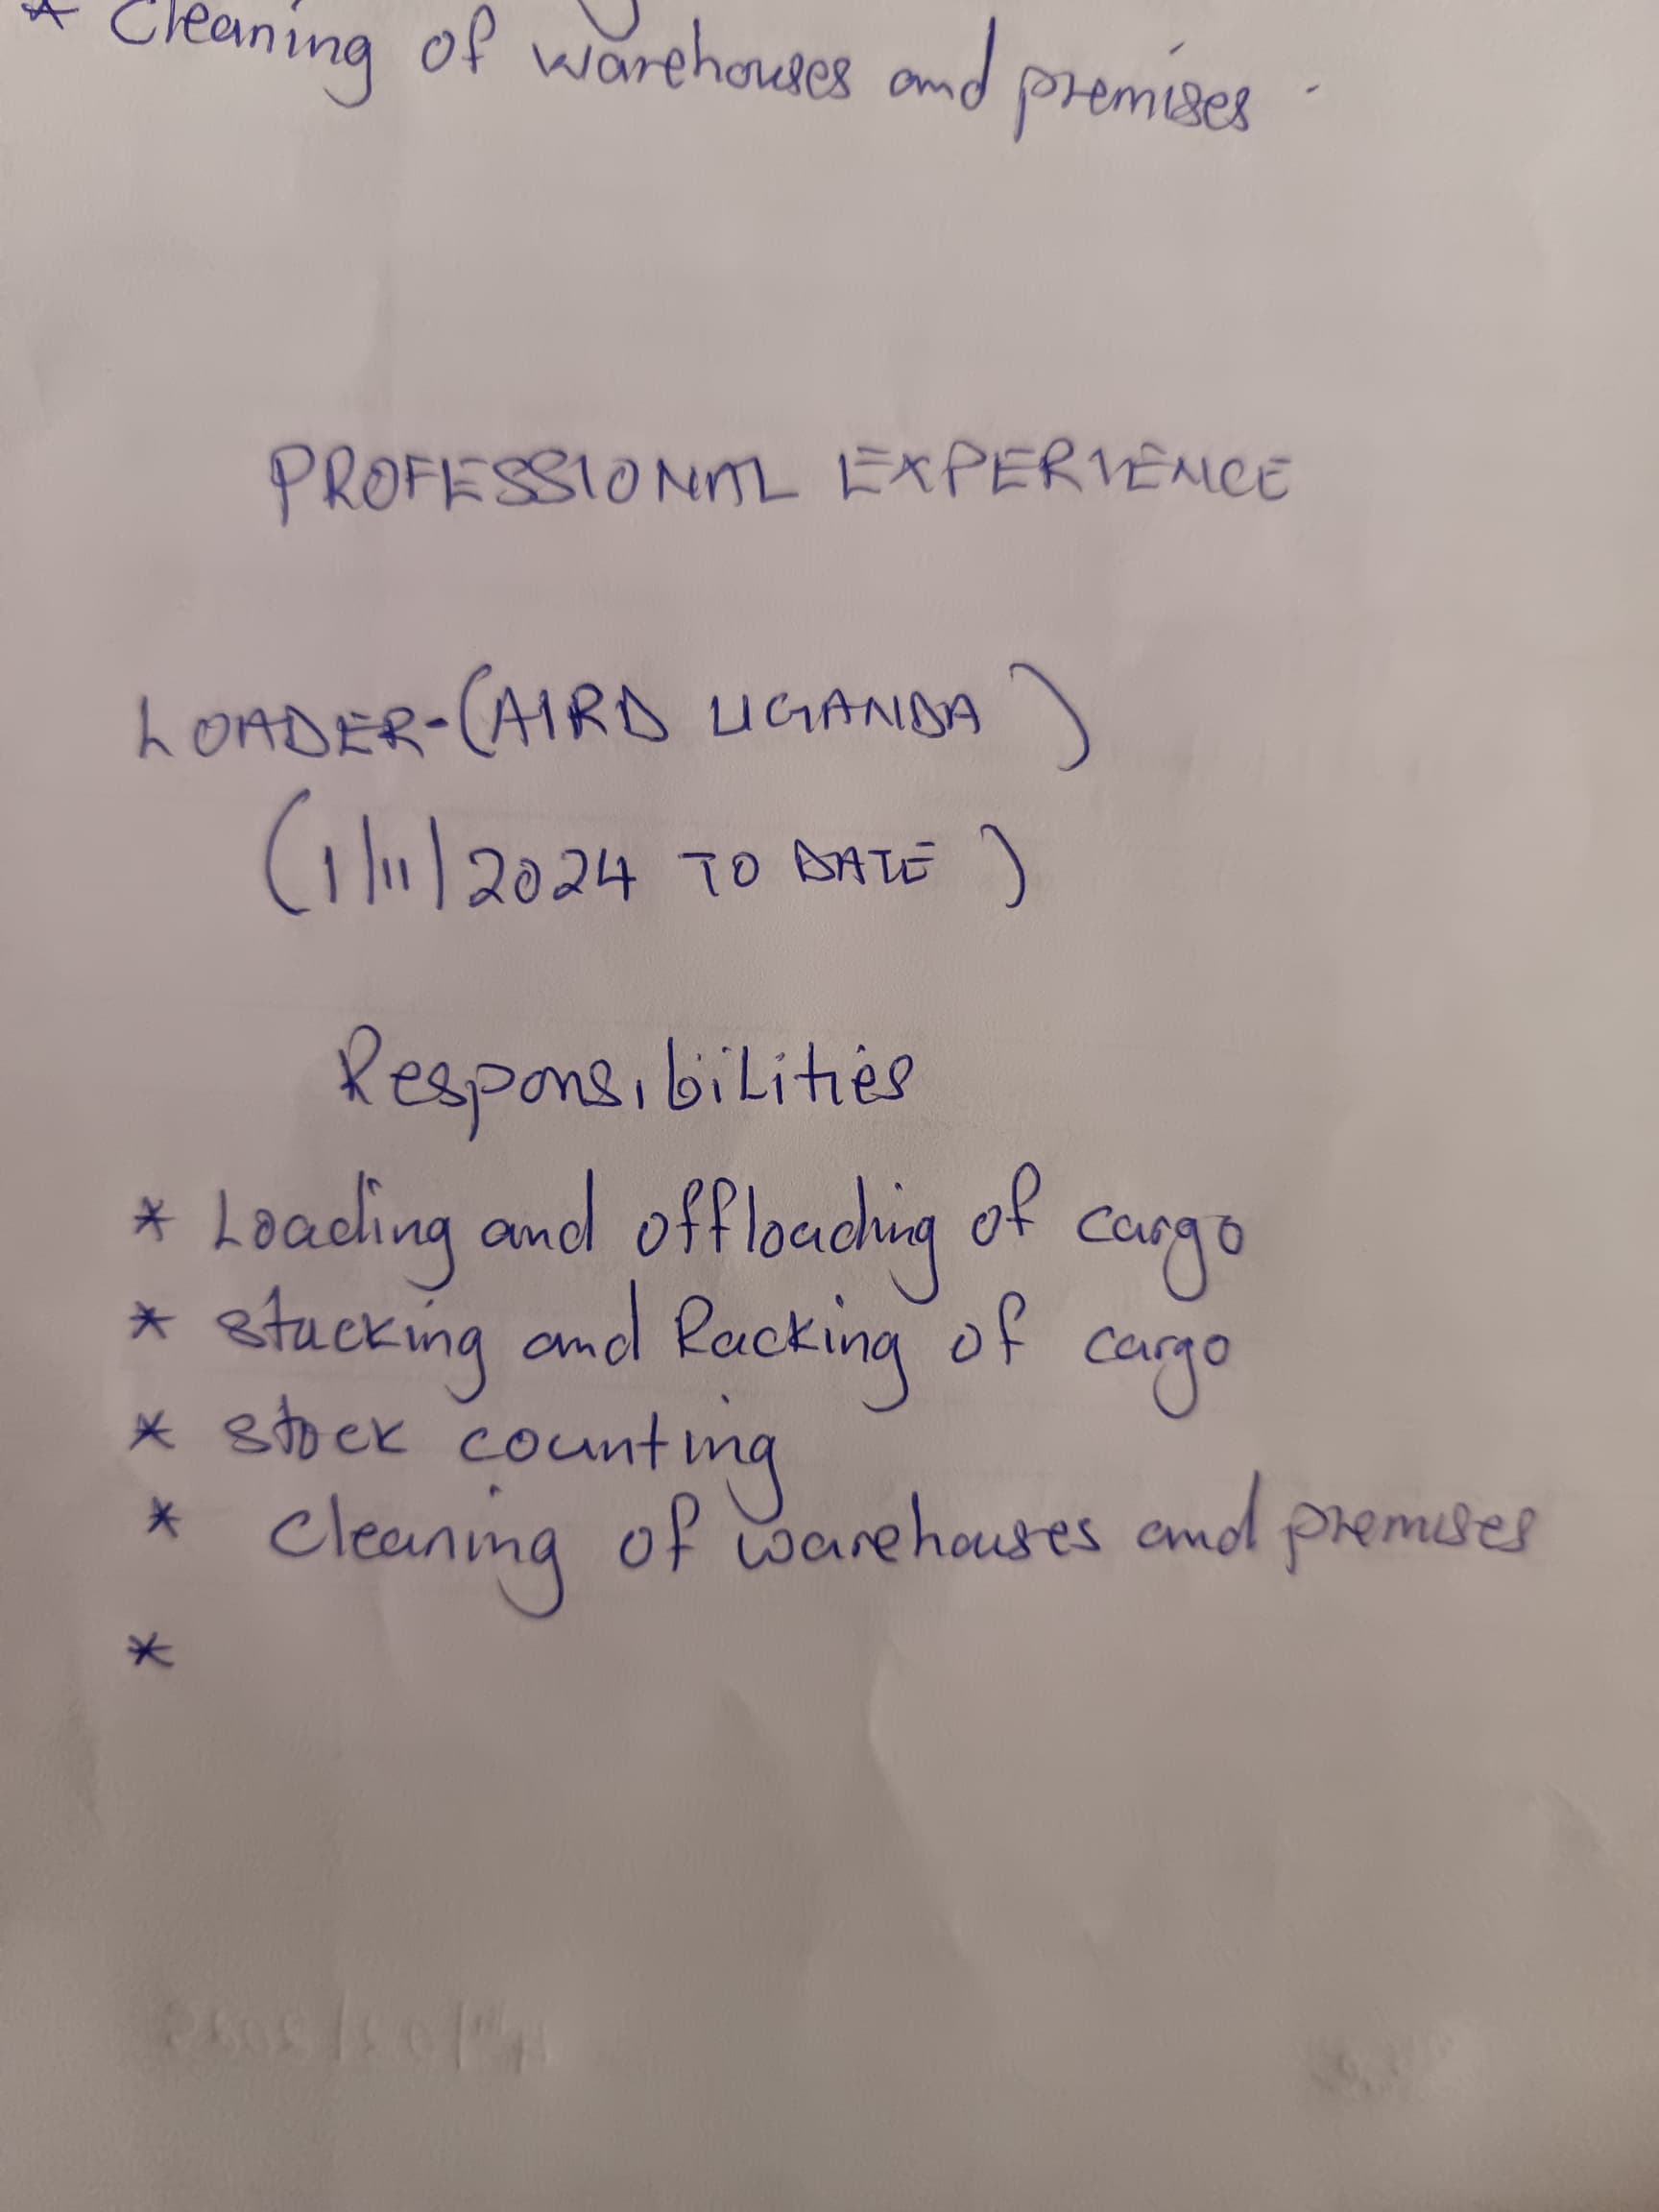 * Cleaning of warehouses and premises.
PROFESSIONAL EXPERIENCE
LOADER-(AIRD UGANDA)
(1/11/2024 TO DATE)
Responsibilities
* Loading and offloading of cargo
* stacking and Racking of cargo
* stock counting
* Cleaning of warehouses and premises
*